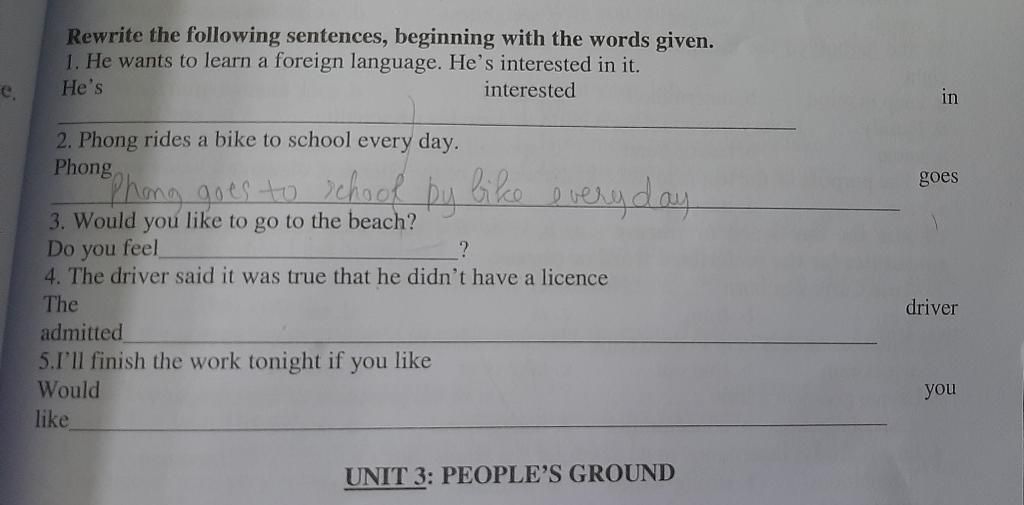 Rewrite the following sentences, beginning with the words given.
1. He wants to learn a foreign language. He's interested in it.
e. He's interested in
2. Phong rides a bike to school every day.
Phong goes
Phong goes to school by bike everyday
3. Would you like to go to the beach?
Do you feel ?
4. The driver said it was true that he didn't have a licence
The driver
admitted
5.I'll finish the work tonight if you like
Would you
like
UNIT 3: PEOPLE'S GROUND